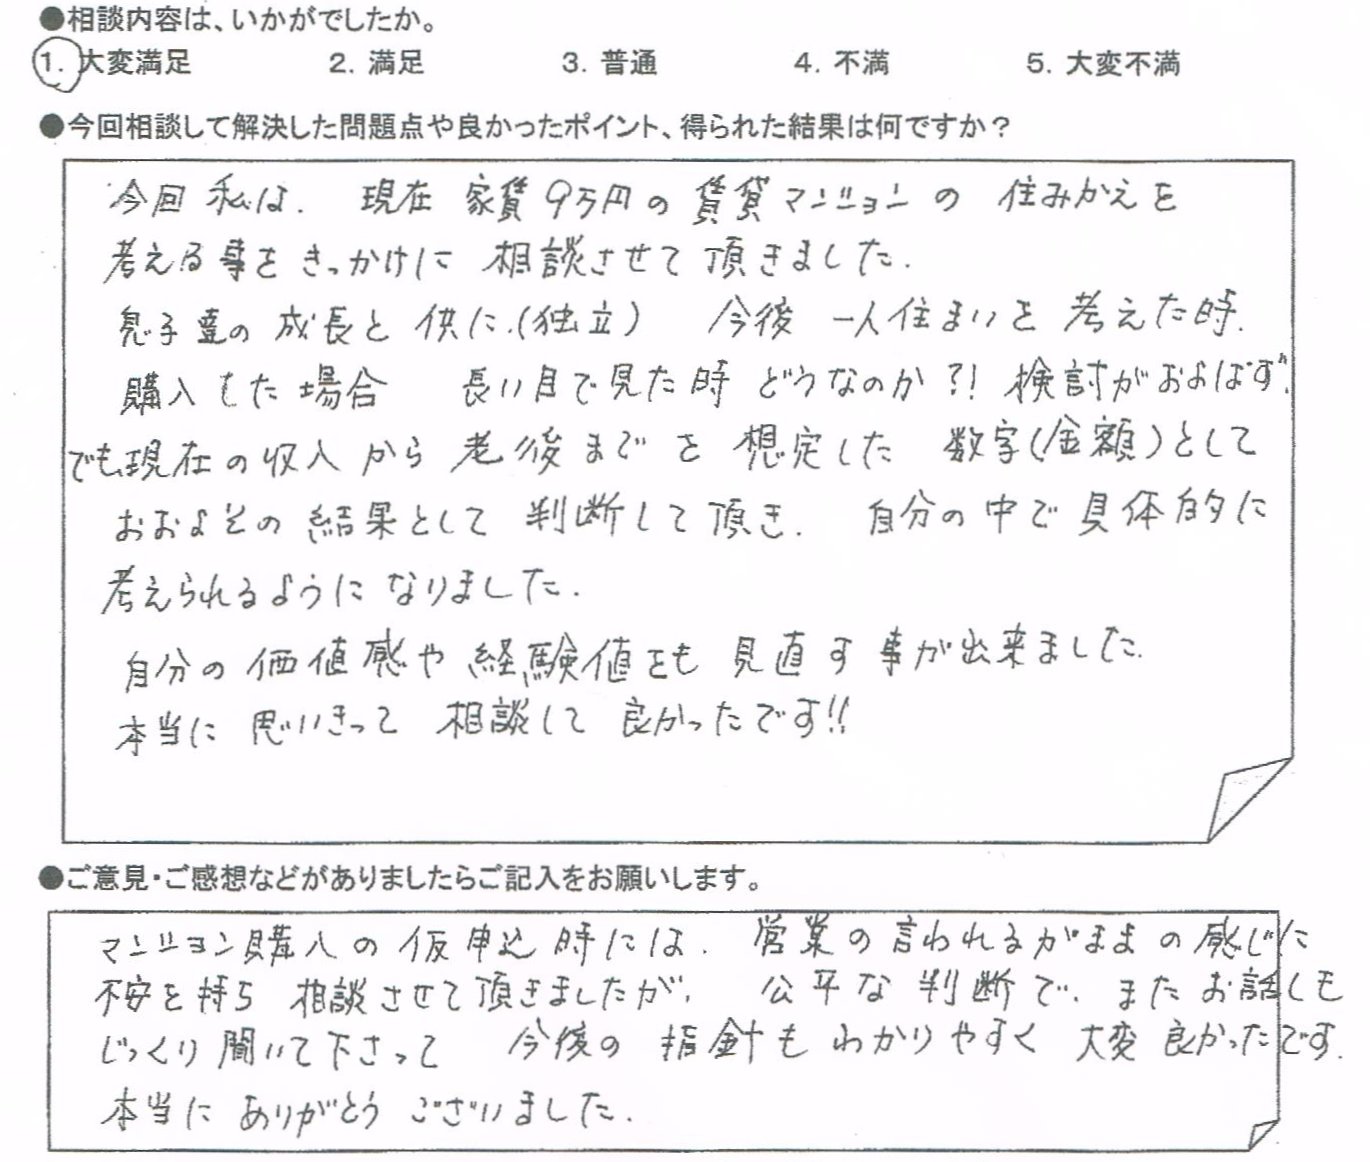 ●相談内容は、いかがでしたか。
1. 大変満足 2. 満足 3. 普通 4. 不満 5. 大変不満
●今回相談して解決した問題点や良かったポイント、得られた結果は何ですか？
今回 私は、現在 家賃9万円の賃貸マンションの 住みかえを
考える事をきっかけに 相談させて頂きました。
息子達の 成長と 供に、(独立) 今後 一人住まいを 考えた時、
購入した場合 長い目で見た時 どうなのか?! 検討がおよばず、
でも現在の収入から 老後までを 想定した 数字(金額)として
おおよその 結果として 判断して頂き、自分の中で具体的に
考えられるようになりました。
自分の価値感や経験値をも 見直す事が出来ました。
本当に 思いきって 相談して 良かったです!!
●ご意見・ご感想などがありましたらご記入をお願いします。
マンション購入の仮申込時には、営業の言われるがままの感じに
不安を持ち 相談させて頂きましたが、公平な判断で、またお話しも
じっくり聞いて下さって 今後の指針もわかりやすく 大変良かったです。
本当に ありがとうございました。